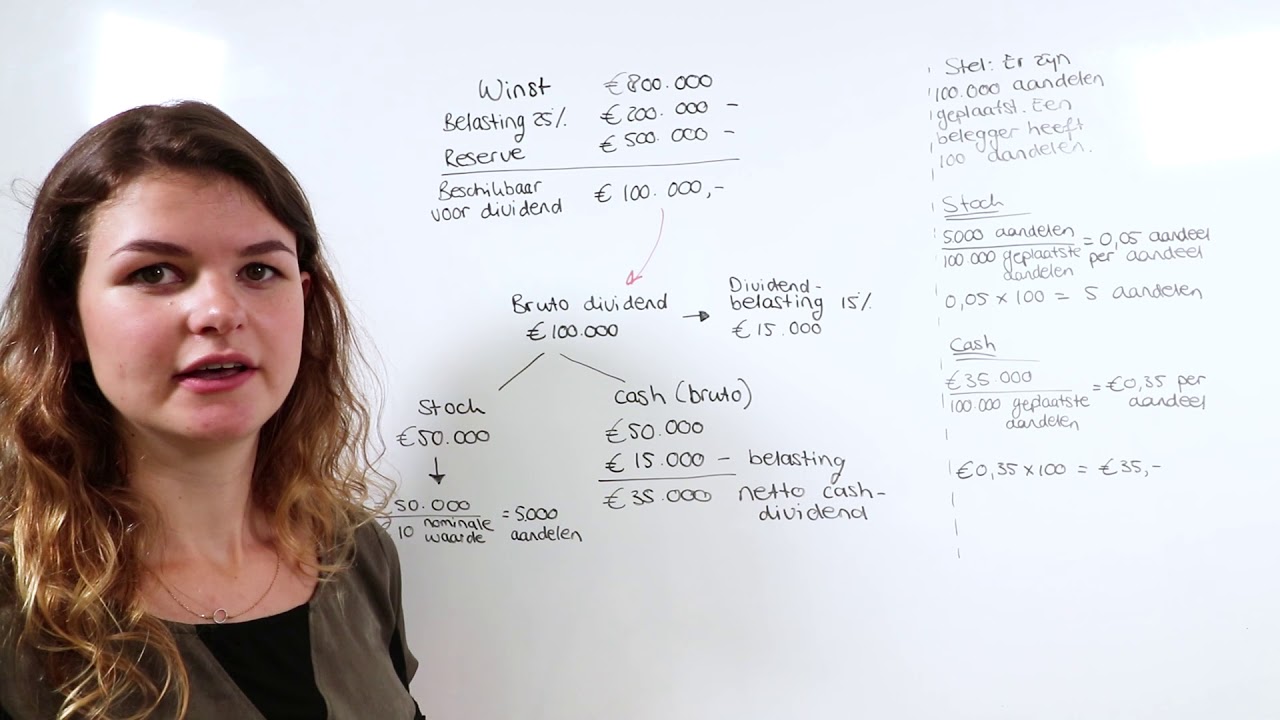 Winst €800.000
Belasting 25% €200.000 -
Reserve €500.000 -
Beschikbaar
voor dividend €100.000,-
Bruto dividend
€100.000
Dividend-
belasting 15%
€15.000
Stock
€50.000
€50.000
10 nominale
waarde
= 5.000
aandelen
cash (bruto)
€50.000
€15.000 - belasting
€35.000 netto cash-
dividend
Stel: Er zijn
100.000 aandelen
geplaatst. Een
belegger heeft
100 aandelen.
Stock
5000 aandelen
100.000 geplaatste
aandelen
= 0,05 aandeel
per aandeel
0,05 x 100 = 5 aandelen
Cash
€35.000
100.000 geplaatste
aandelen
= €0,35 per
aandeel
€0,35 x 100 = €35,-